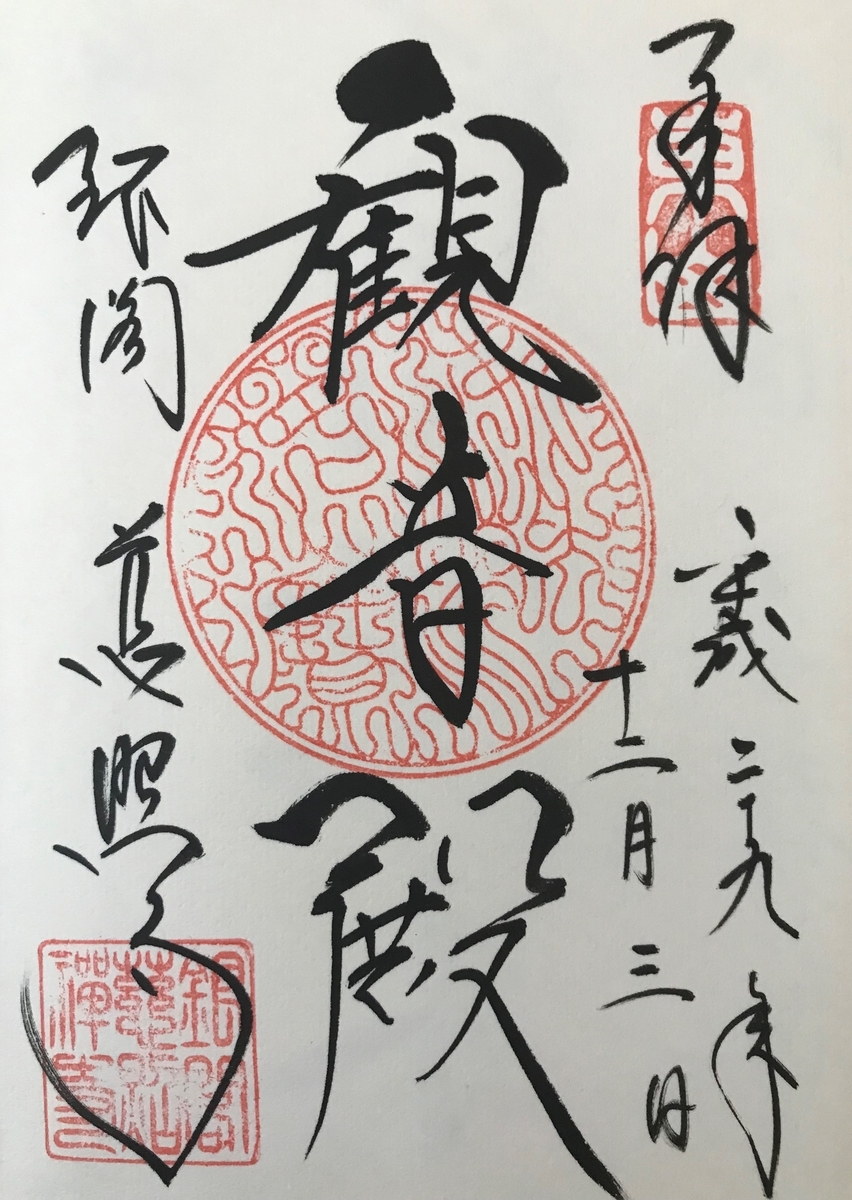 奉拝
平成二十九年
十二月三日
觀音殿
銀閣 慈照寺
銀閣
慈照
禪寺